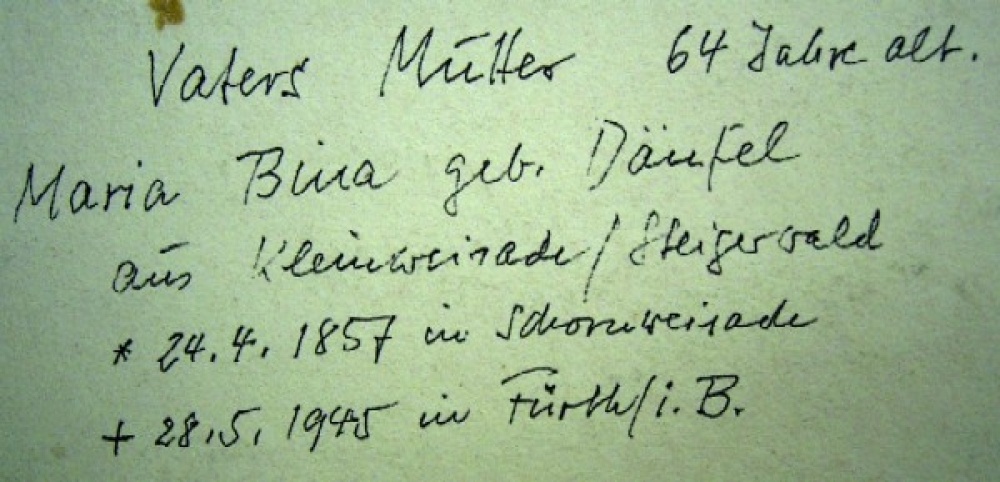 Vaters Mutter 64 Jahre alt.
Maria Bina geb. Däufel
aus Kleinweisach/Steigerwald
* 24.4.1857 in Schornweisach
+ 28.5.1945 in Fürth/i.B.